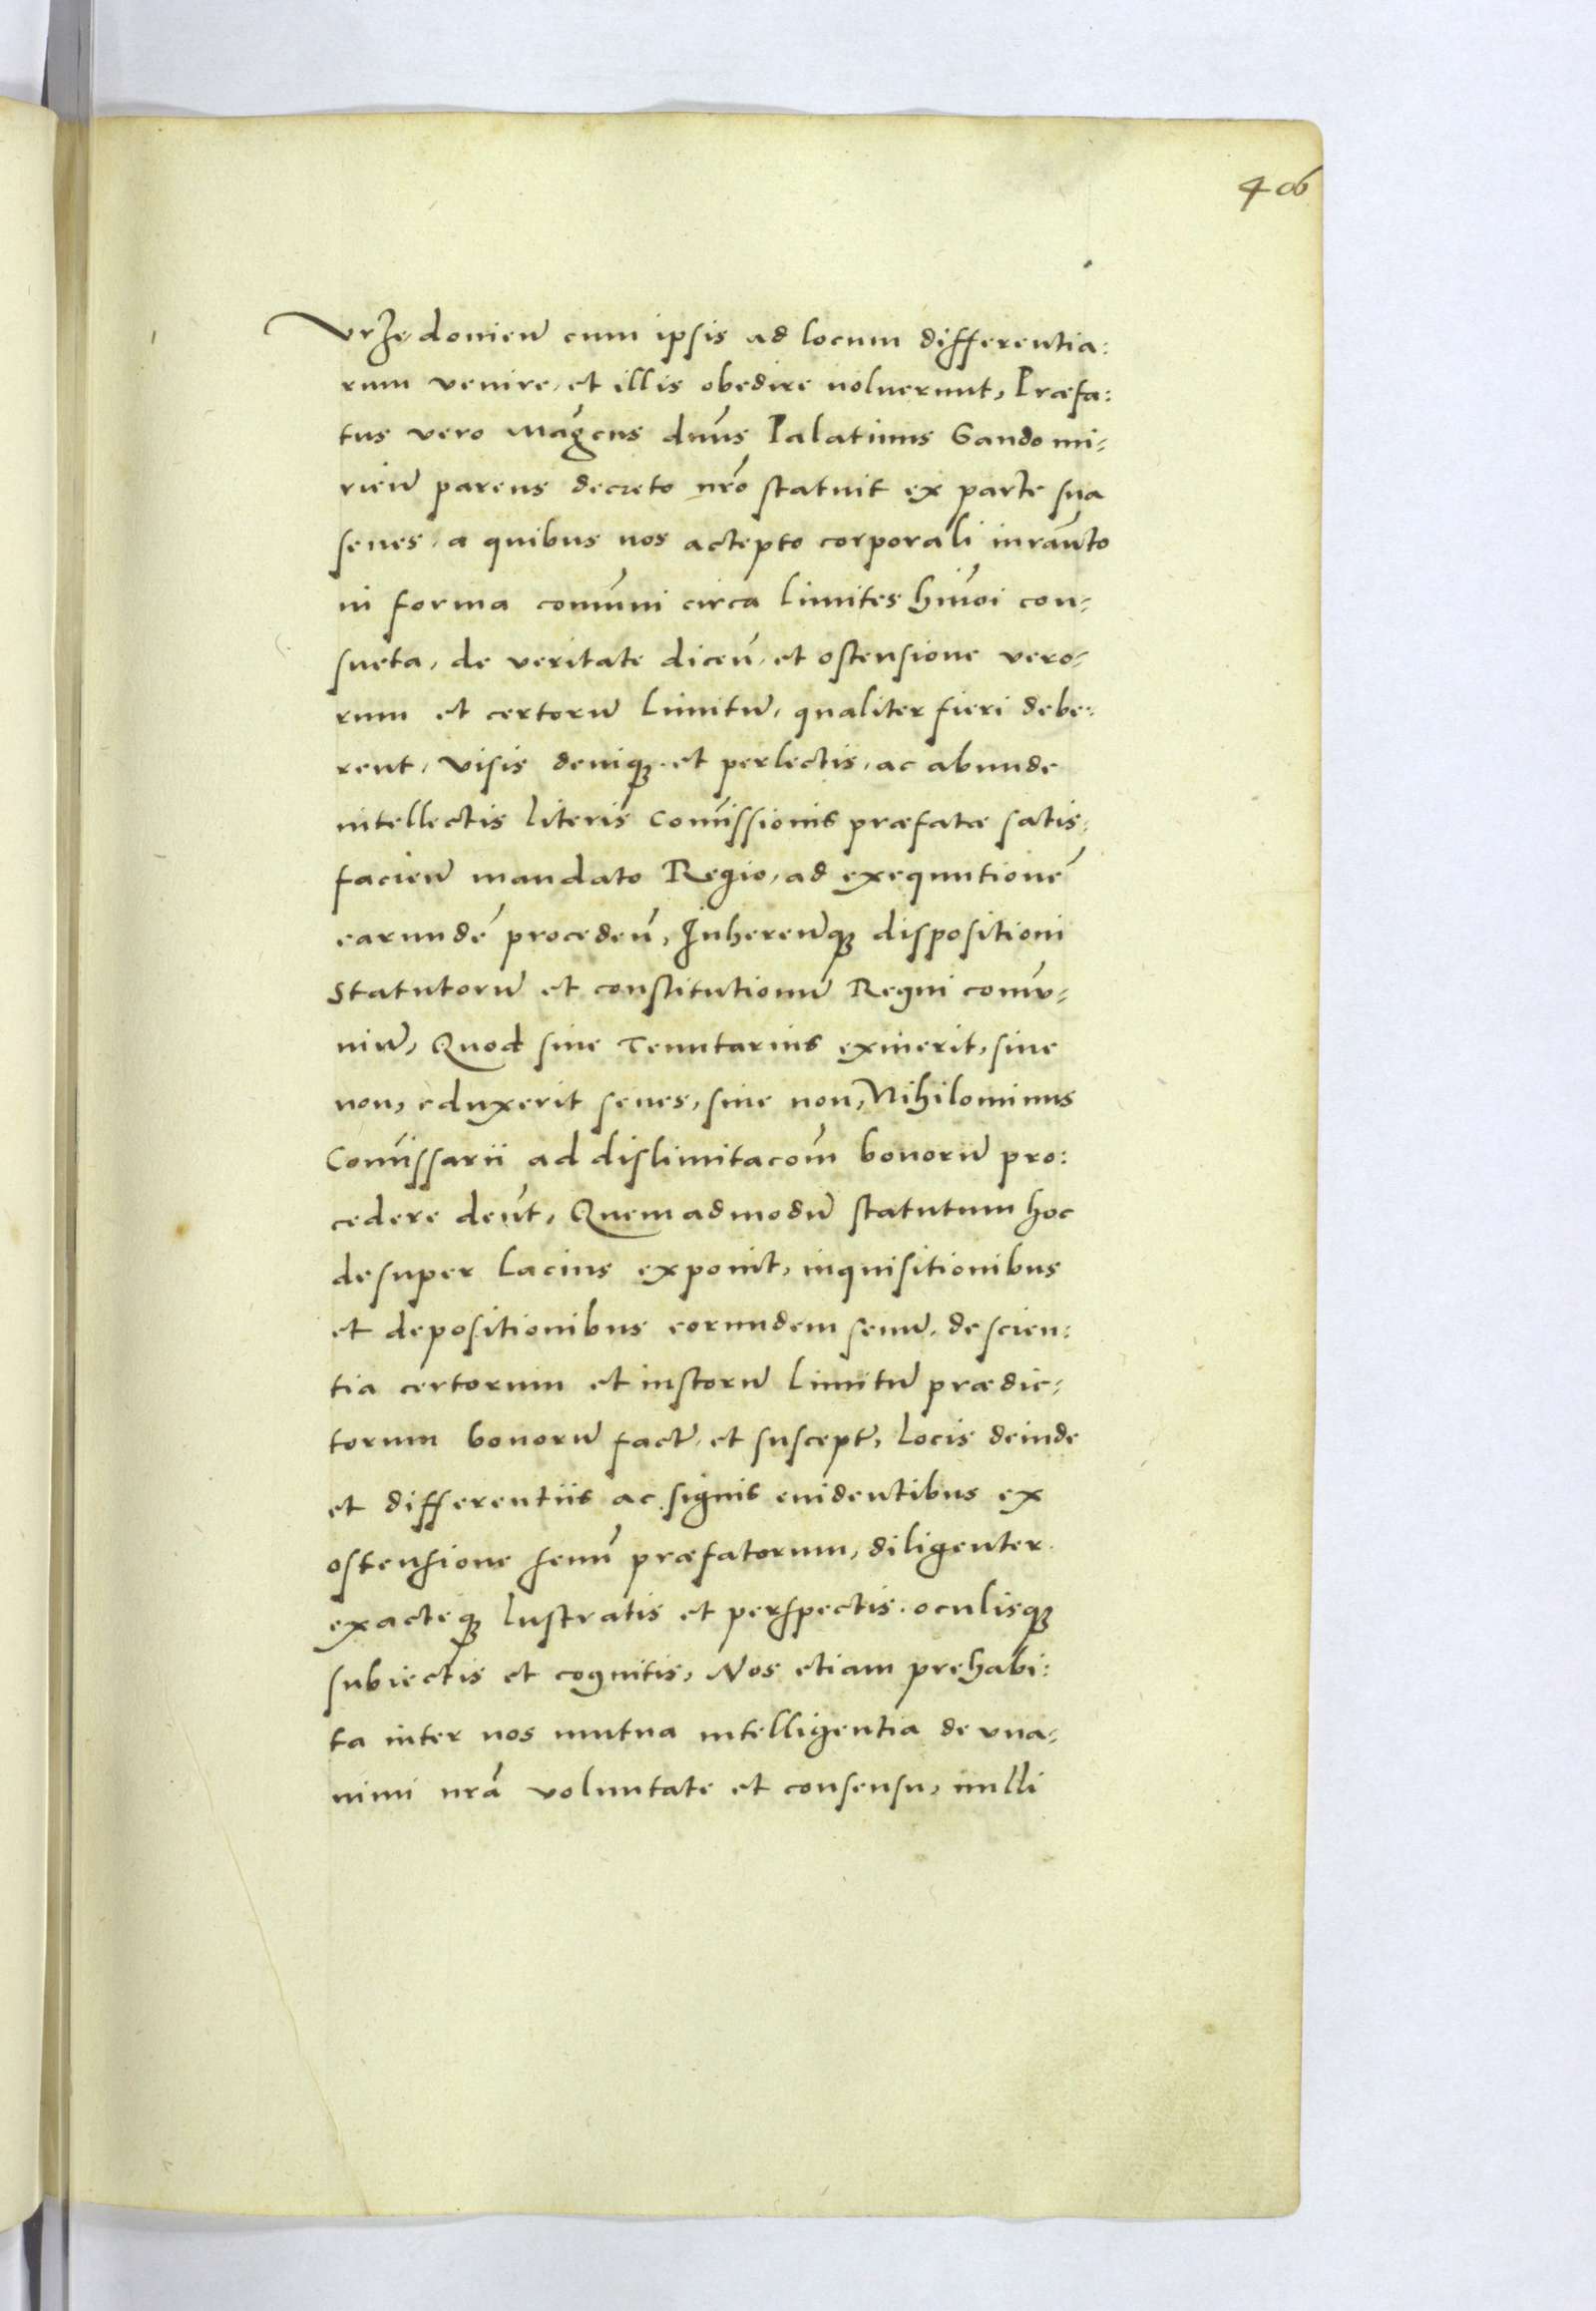 406
Vrzedowien̄ cum ipsis ad locum differentia:
rum venire, et illis obedire noluerunt, Præfa:
tus vero Mag̃cus dn̄us Palatinus Sandomi-
rien̄ parens decreto nr̃o statuit ex parte sua
senes, a quibus nos accepto corporali iuram̄to
in forma com̄uni circa limites hm̄oi con-
sueta, de veritate dicen̄, et ostensione vero-
rum et certorū limitū, qualiter fieri debe:
rent, visis deniqȝ et perlectis, ac abunde
intellectis literis Com̄issionis præfatæ satis-
facien̄ mandato Regio, ad exequutionē
earundē proceden̄, Inheren̄qȝ dispositioni
Statutorū et constitutionū Regni comū-
niū, Quod siue Tenutarius exiuerit, siue
non, eduxerit senes, siue non, Nihilominus
Com̄issarii ad dislimitacom̄ bonorū pro:
cedere den̄t, Quemadmodū statutum hoc
desuper lacius exponit, inquisitionibus
et depositionibus eorundem senū, de scien:
tia certorum et iustorū limitū prædic-
torum bonorū fact̃, et suscept̃, locis deinde
et differentiis ac signis euidentibus ex
ostensione senū præfatorum, diligenter
exacteqȝ lustratis et perspectis, oculisqȝ
subiectis et cognitis, Nos etiam prehabi:
ta inter nos mutua intelligentia de vna-
nimi nr̃a voluntate et consensu, nulli